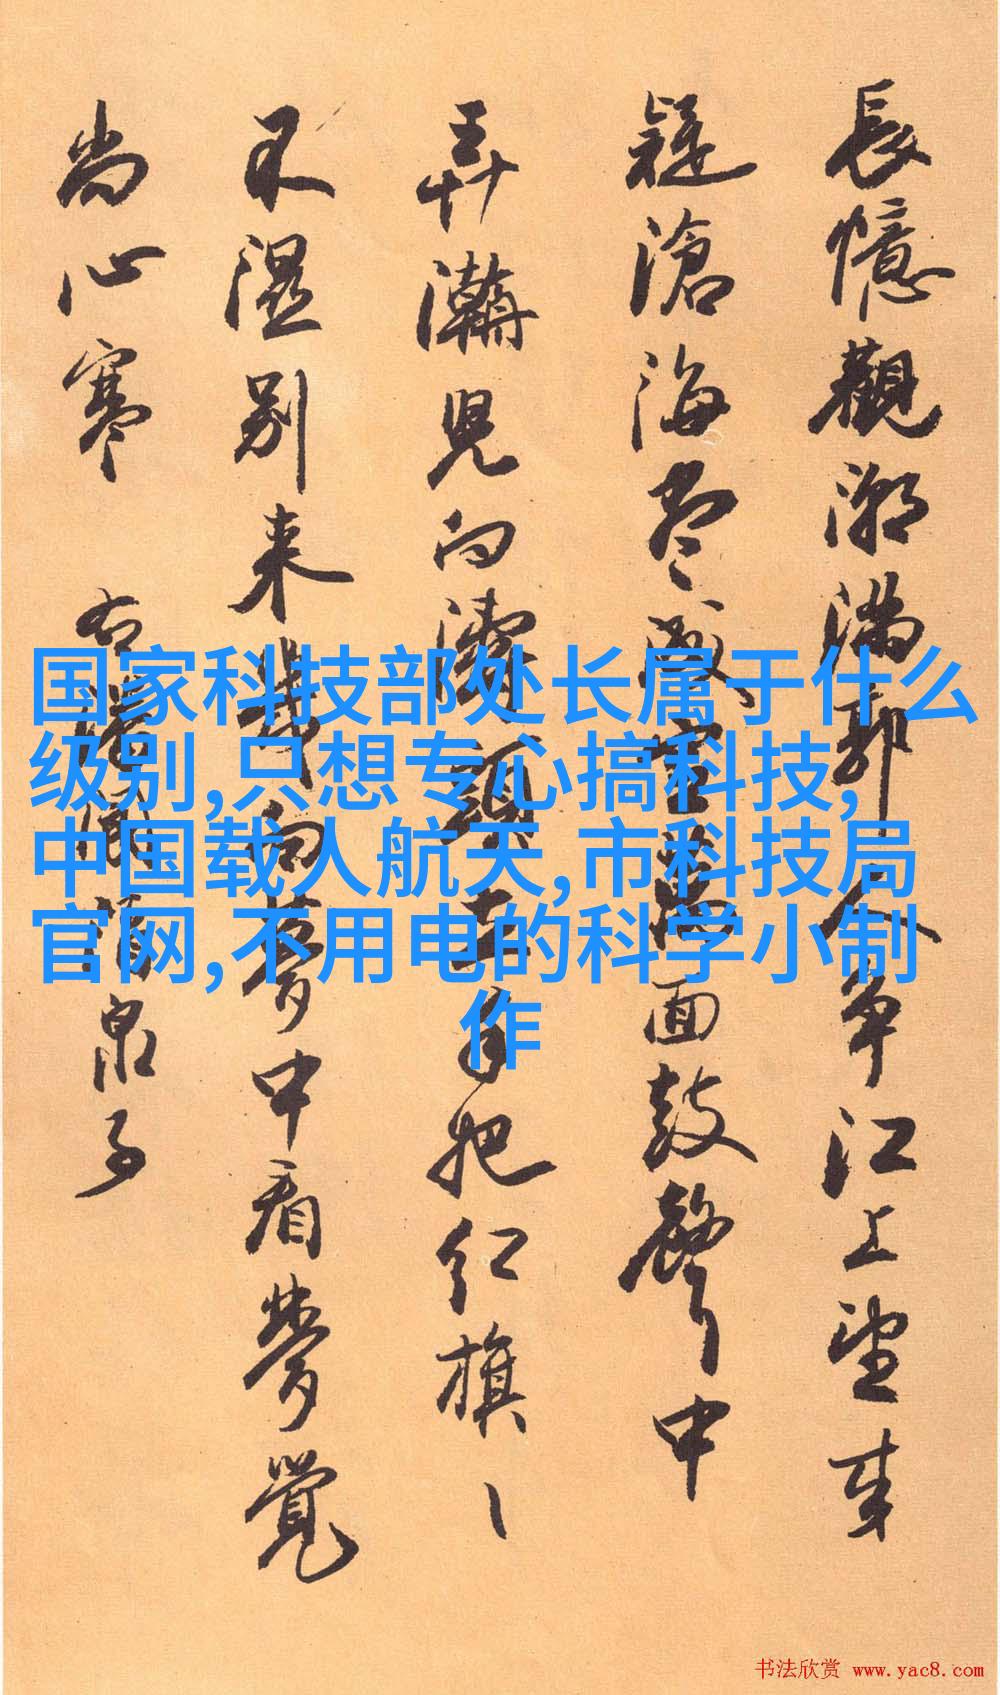 長憶觀潮滿郭人爭江上望来
疑滄海尽成空萬面鼓聲中
弄潮児向濤頭立手把红旗〻
不湿别来幾向夢中看夢覺
尚心寒 右潘阆酒泉子
国家科技部处长属于什么
级别,只想专心搞科技,
中国载人航天,市科技局
官网,不用电的科学小制
作
书法欣赏 www.yac8.com